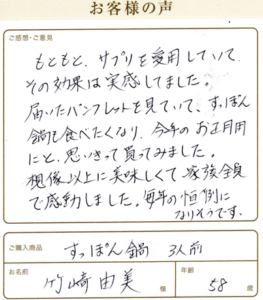 お客様の声
ご感想・ご意見
もともと、サプリを愛用していて、
その効果は実感してました。
届いたパンフレットを見ていて、すっぽん
鍋も食べたくなり、今年のお正月用
にと、思いきって買ってみました。
想像以上に美味しくて家族全員
で感動しました。毎年の恒例に
なりそうです。
ご購入商品
すっぽん鍋 3人前
お名前 竹崎由美 様
年齢 58 歳